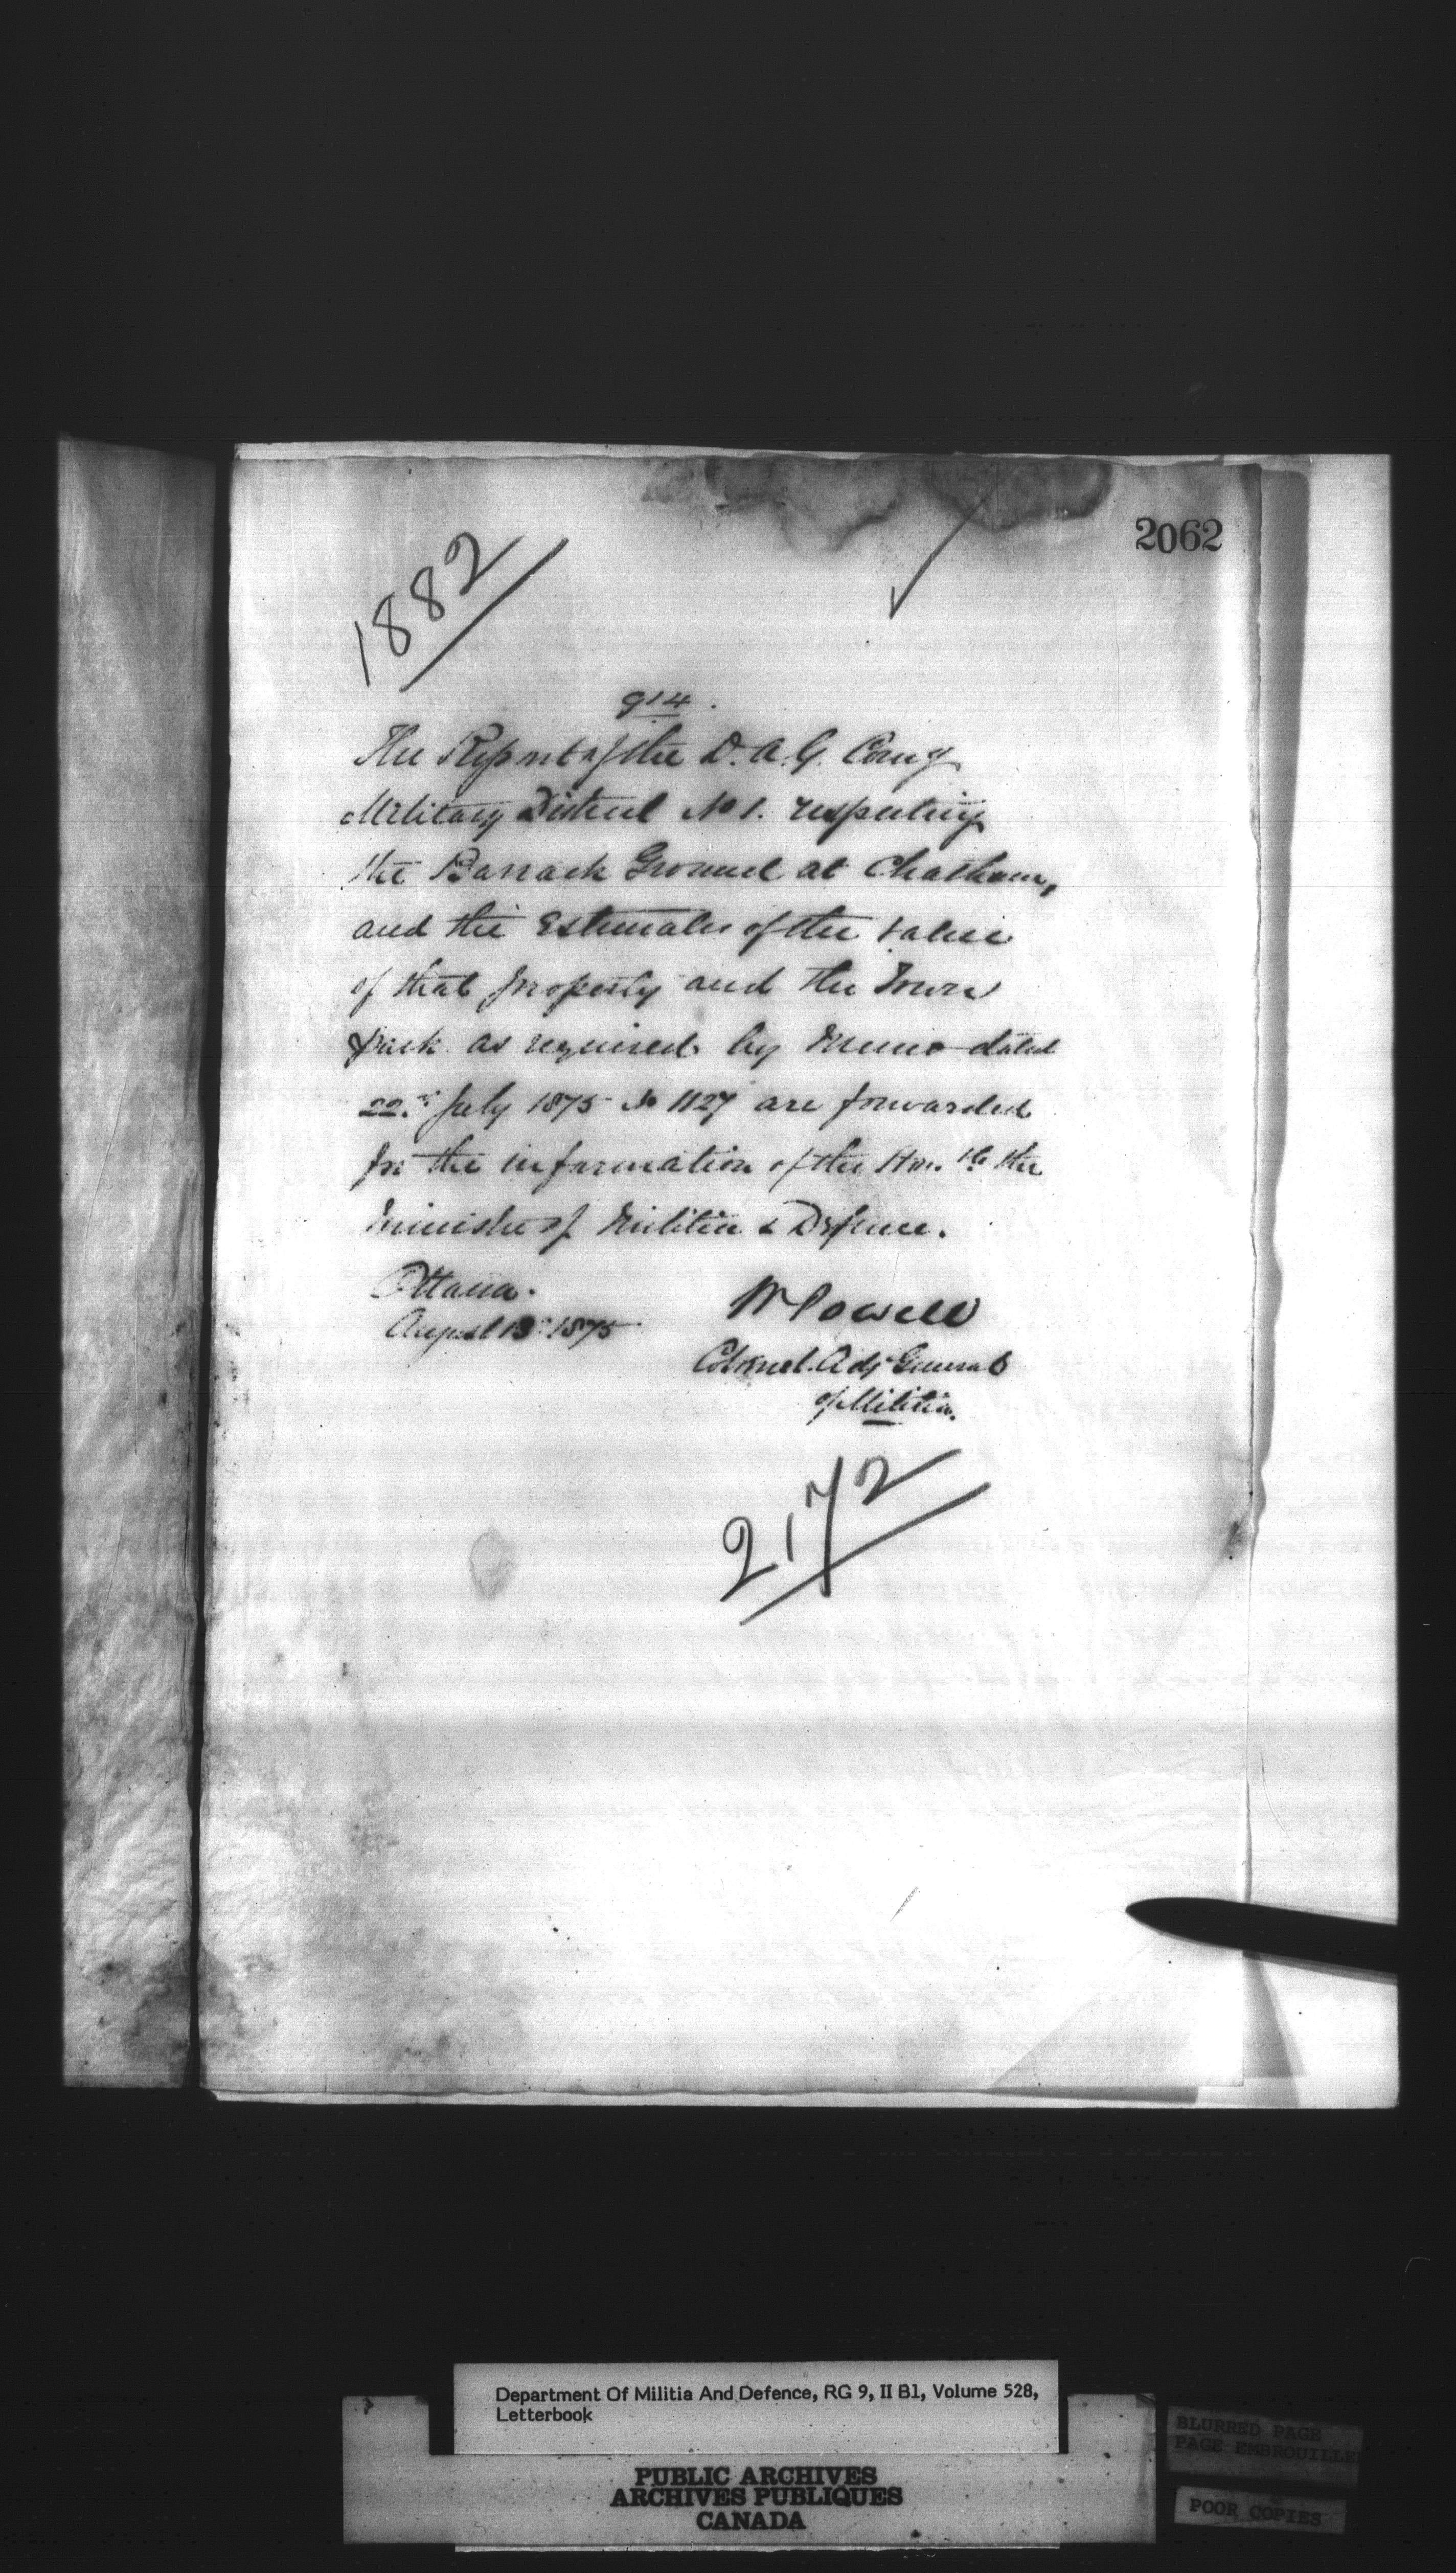 2062
1882
914.
The Report of the D.A.G. Comg
Military District No 1. respecting
the Barrack Ground at Chatham,
and the Estimates of the value
of that property and the Town
park as required by Memo dated
22nd July 1875 No 1127 are forwarded
for the information of the Hon. ble the
Minister of Militia & Defence.
Ottawa.
August 13th 1875
W Powell
Colonel. Adj General
of Militia.
2172
Department Of Militia And Defence, RG 9, II B1, Volume 528,
Letterbook
PUBLIC ARCHIVES
ARCHIVES PUBLIQUES
CANADA
BLURRED PAGE
PAGE EMBROUILLE
POOR COPIES